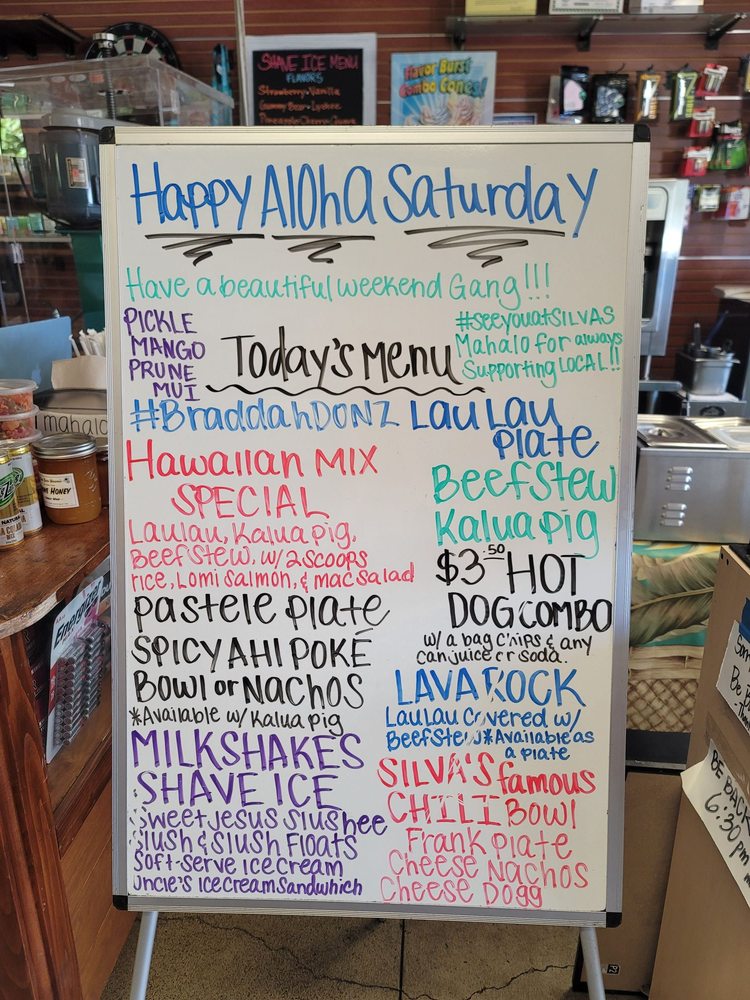 SHAVE ICE MENU
FLAVORS
Strawberry-Vanilla
Gummy Bear-Lychee
Pineapple-Cherry-Guava
Flavor Burst
Combo Cones!
Happy Aloha Saturday
Have a beautiful weekend Gang!!!
PICKLE
MANGO
PRUNE
MUI
Today's Menu
#SEEYOUATSILVAS
Mahalo for always
Supporting LOCAL!!
#BraddahDONZ LAU LAU
Plate
Hawaiian MIX
SPECIAL
Laulau, Kalua pig,
Beef Stew, w/ 2 scoops
rice, Lomi Salmon, & mac salad
Beef Stew
Kalua pig
$3.50 HOT
DOG COMBO
w/ a bag C'nips & any
can juice or soda.
Pastele Plate
SPICY AHI POKÉ
BOWL or NACHOS
*Available w/ Kalua pig
LAVA ROCK
Laulau Covered w/
Beef Stew *Available as
a plate
MILKSHAKES
SHAVE ICE
Sweet Jesus Slushee
Slush & Slush Floats
Soft-Serve Ice Cream
Uncle's Ice Cream Sandwhich
SILVA'S famous
CHILI Bowl
Frank Plate
Cheese Nachos
Cheese Dogg
mahalo
HONEY
Energizer
BE BACK
6:30 pm